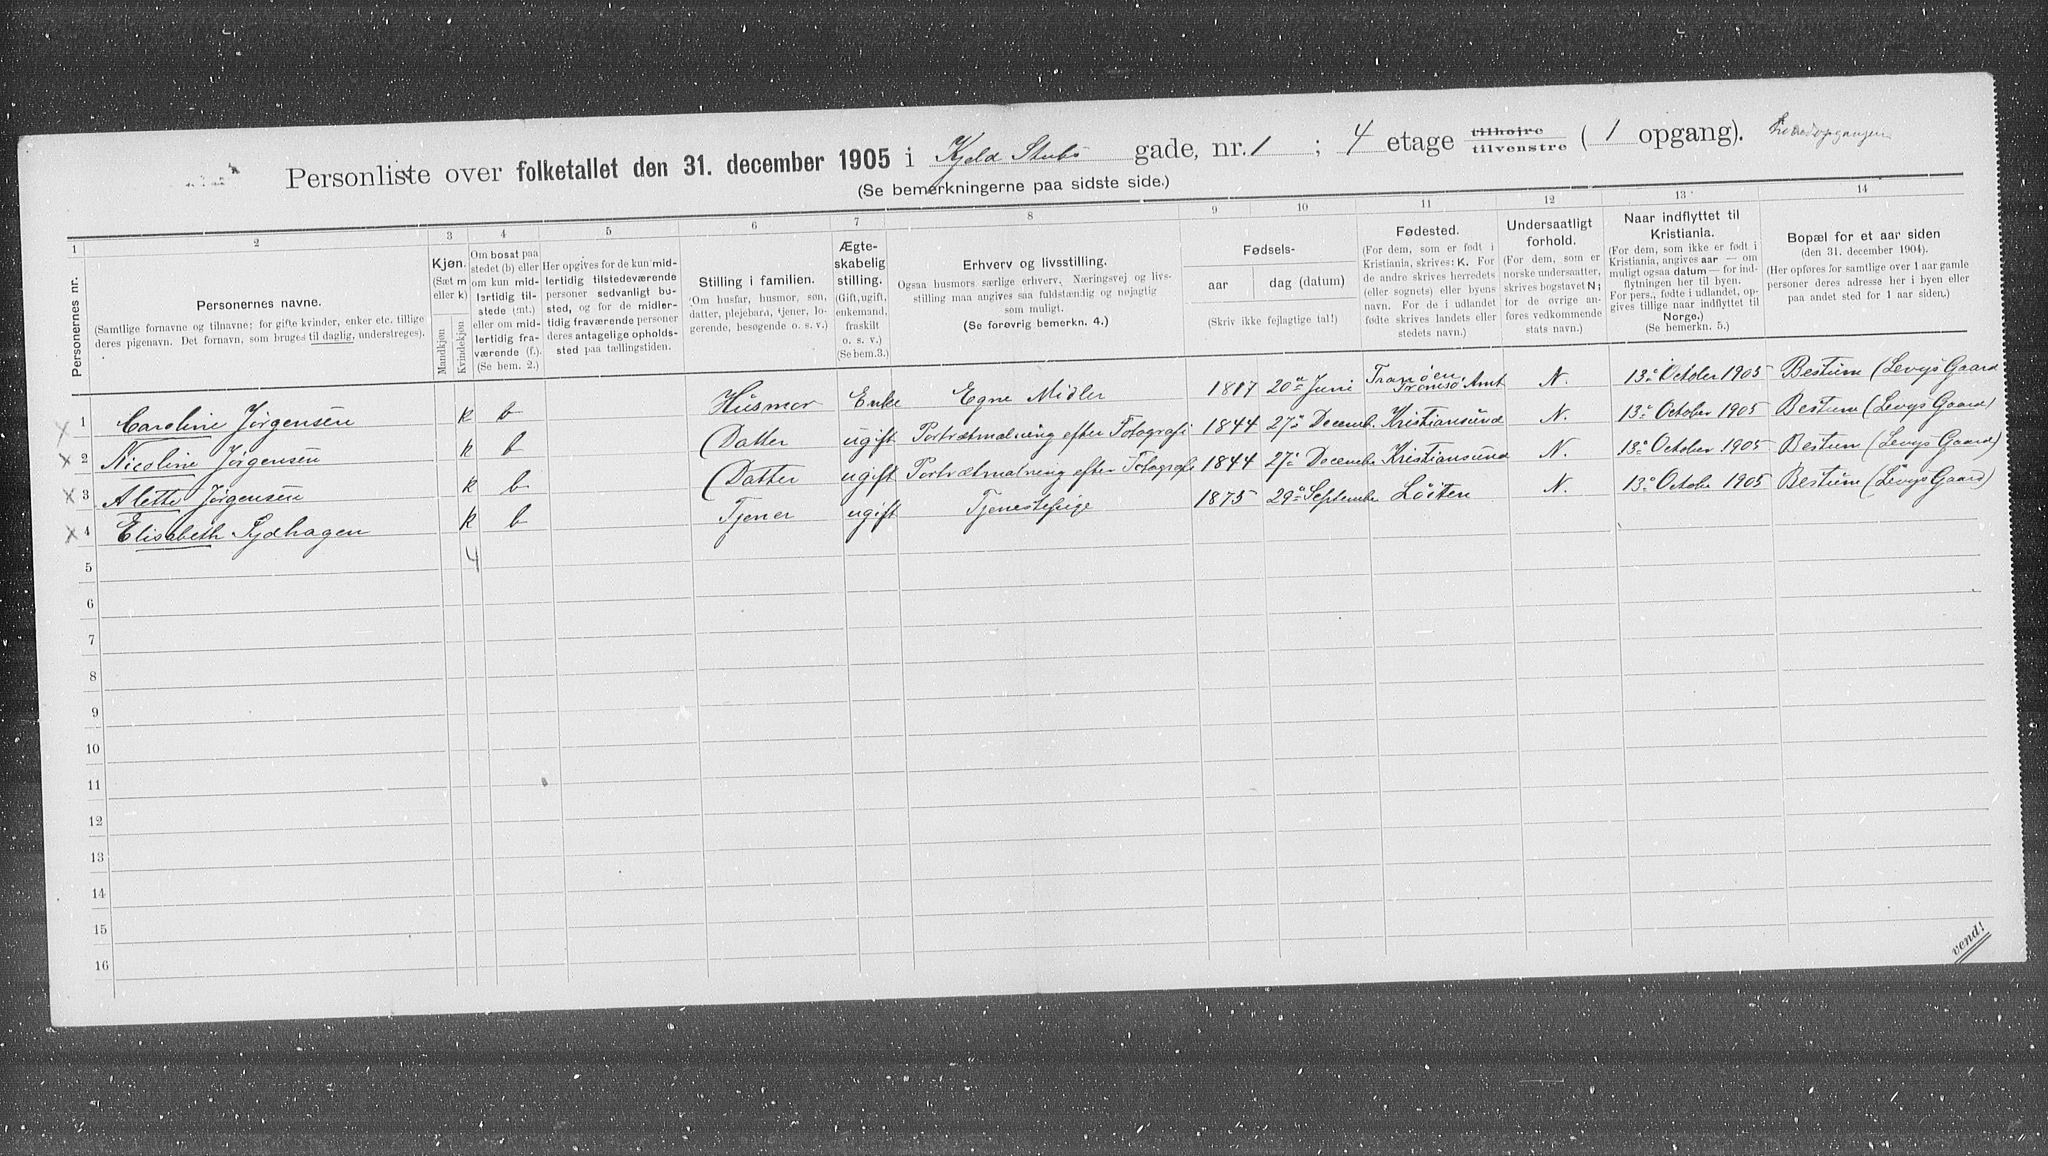 Personliste over folketallet den 31. december 1905 i Kjeld Stubs gade, nr. 1 ; 4 etage tilhøire tilvenstre ( 1 opgang). Hovedopgangen
(Se bemerkningerne paa sidste side.)
1 2 3 4 5 6 7 8 9 10 11 12 13 14
Personernes nr.
Personernes navne.
(Samtlige fornavne og tilnavne; for gifte kvinder, enker etc. tillige
deres pigenavn. Det fornavn, som bruges til daglig, understreges).
Kjøn.
(Sæt m
eller k)
Mandkjøn
Kvindekjøn
Om bosat paa
stedet (b) eller
om kun mid-
lertidig til-
stede (mt.)
eller om mid-
lertidig fra-
værende (f.).
(Se bem. 2.)
Her opgives for de kun mid-
lertidig tilstedeværende
personer sedvanligt bo-
sted, og for de midler-
tidig fraværende personer
deres antagelige opholds-
sted paa tællingstiden.
Stilling i familien.
(Om husfar, husmor, søn,
datter, plejebarn, tjener, lo-
gerende, besøgende o. s. v.)
Ægte-
skabelig
stilling.
(Gift, ugift,
enkemand,
fraskilt
o. s. v.)
(Se bem.3.)
Erhverv og livsstilling.
Ogsaa husmors særlige erhverv. Næringsvej og livs-
stilling maa angives saa fuldstændig og nøjagtig
som muligt.
(Se forøvrig bemerkn. 4.)
Fødsels-
aar
dag (datum)
(Skriv ikke fejlagtige tal!)
Fødested.
(For dem, som er født i
Kristiania, skrives: K. For
de andre skrives herredets
(eller sognets) eller byens
navn. For de i udlandet
fødte skrives landets eller
stedets navn.)
Undersaatligt
forhold.
(For dem, som er
norske undersaatter,
skrives bogstavet N;
for de øvrige an-
føres vedkommende
stats navn.)
Naar indflyttet til
Kristiania.
(For dem, som ikke er født i
Kristiania, angives aar — om
muligt ogsaa datum — for ind-
flytningen her til byen.
For pers., fødte i udlandet, op-
gives tillige naar indflyttet til
Norge.)
(Se bemerkn. 5.)
Bopæl for et aar siden
(den 31. december 1904).
(Her opføres for samtlige over 1 aar gamle
personer deres adresse her i byen eller
paa andet sted for 1 aar siden.)
1 Caroline Jørgensen k b Husmor Enke Egne Midler 1817 20de Juni Tranøen Tromsø Amt N. 13de October 1905 Bestum (Levys Gaard)
2 Nicoline Jørgensen k b (Datter ugift Portrætmalning efter Fotografi 1844 27de Decemb. Kristiansund N. 13de October 1905 Bestum (Levys Gaard)
3 Alette Jørgensen k b (Datter ugift Portrætmalning efter Fotografi 1844 27de Decembe Kristiansund N. 13de October 1905 Bestum (Levys Gaard)
4 Elisabeth Sydhagen k b Tjener ugift Tjenestepige 1875 29de Septembe Löiten N. 13de Octobe 1905 Bestum (Levys Gaard)
5 4
6
7
8
9
10
11
12
13
14
15
16
vend!